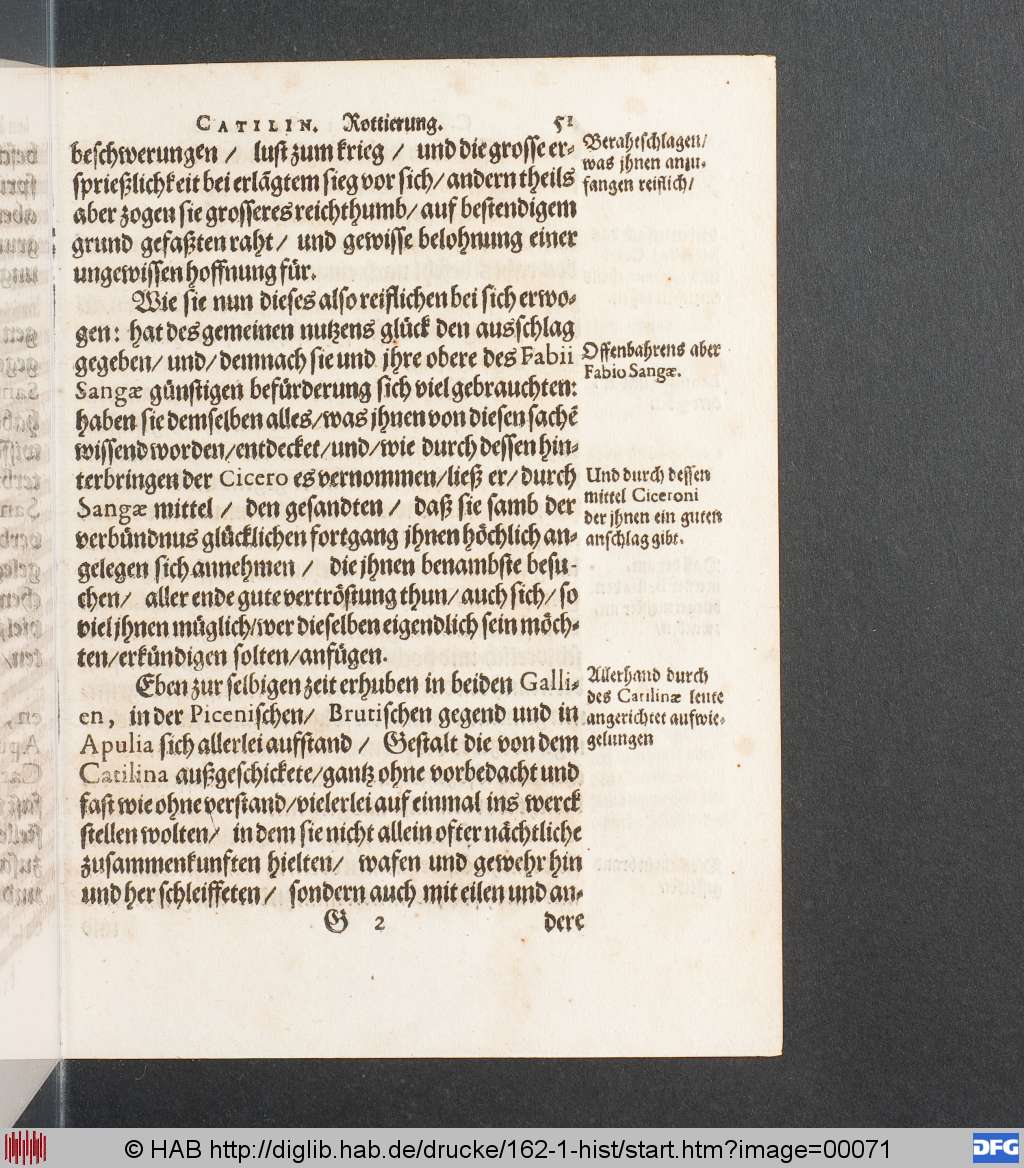 CATILIN. Rottierung. 51
beschwerungen / lust zum krieg / und die grosse er-
sprießlichkeit bei erlägtem sieg vor sich/ andern theils
aber zogen sie grosseres reichthumb/ auf bestendigem
grund gefaßten raht/ und gewisse belohnung einer
ungewissen hoffnung für.
Wie sie nun dieses also reiflichen bei sich erwo-
gen: hat des gemeinen nutzens glück den ausschlag
gegeben/ und/ demnach sie und jhre obere des Fabii
Sangæ günstigen befürderung sich viel gebrauchten:
haben sie demselben alles/was jhnen von diesen sachẽ
wissend worden/entdecket/und/wie durch dessen hin-
terbringen der Cicero es vernommen/ließ er/ durch
Sangæ mittel / den gesandten / daß sie samb der
verbündnus glücklichen fortgang jhnen höchlich an-
gelegen sich annehmen / die jhnen benambste besu-
chen/ aller ende gute vertröstung thun/ auch sich/ so
viel jhnen müglich/wer dieselben eigendlich sein möch-
ten/erkündigen solten/anfügen.
Eben zur selbigen zeit erhuben in beiden Galli-
en, in der Picenischen/ Brutischen gegend und in
Apulia sich allerlei aufstand / Gestalt die von dem
Catilina außgeschickete/gantz ohne vorbedacht und
fast wie ohne verstand/vielerlei auf einmal ins werck
stellen wolten/ in dem sie nicht allein ofter nächtliche
zusammenkunften hielten/ wafen und gewehr hin
und her schleiffeten / sondern auch mit eilen und an-
G 2 dere
Berahtschlagen/
was jhnen anzu-
fangen reiflich/
Offenbahrens aber
Fabio Sangæ.
Und durch dessen
mittel Ciceroni
der jhnen ein guten
anschlag gibt.
Allerhand durch
des Catilinæ leute
angerichtet aufwie-
gelungen
© HAB http://diglib.hab.de/drucke/162-1-hist/start.htm?image=00071
DFG